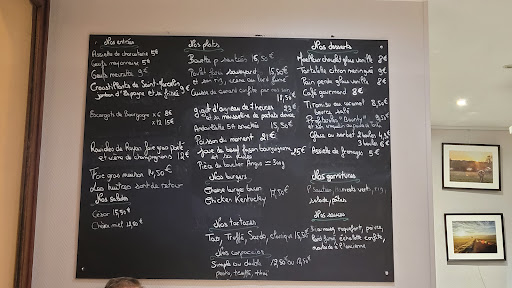 Nos entrées
Assiette de charcuterie 5€
Oeufs mayonnaise 5€
Oeufs meurette 9€
Croustillants de Saint-Marcellin
jambon d'Espagne et sa frisée 9€
Escargots de Bourgogne x6 8€
x12 15€
Ravioles de Royan foie gras poêlé
et crème de champignons 12€
Foie gras maison 14,50€
Les huîtres sont de retour
Nos salades
César 15,50€
Chèvre miel
Nos plats
Bavette p. sautées 16,50€
Poulet fermier 15,50€
et son riz, crème au lard fumé
Cuisse de canard confite par nos soins
17,50€
gigot d'agneau de 7 heures 23€
et sa mousseline de patate douce
Andouillette 5A grillée 15,50€
Poisson du moment 21€
joue de boeuf façon bourguignonne 25€
et ses
Pièce du boucher Angus = 300g
Nos burgers
Cheese burger bacon
Chicken Kentucky 17,50€
Nos tartares
Trad, Truffé, Sarde, classique 15,50€
Nos carpaccios
Simple ou double 12,50 ou 18,50€
pesto, truffé, thaï
Nos desserts
Moelleux chocolat glace vanille 8€
Tartelette citron meringuée 9€
Pain perdu glace vanille 8€
Café gourmand 8€
Tiramisu au caramel 8,50€
beurre salé
Profiterole "Bounty" 9€
Glace ou sorbet 2 boules 4,50€
3 boules 6€
Assiette de fromages 5€
Nos garnitures
P. sautées, haricots verts, riz,
salade, pâtes
Nos sauces
Béarnaise, roquefort, poivre,
échalote confite,
moutarde à l'ancienne